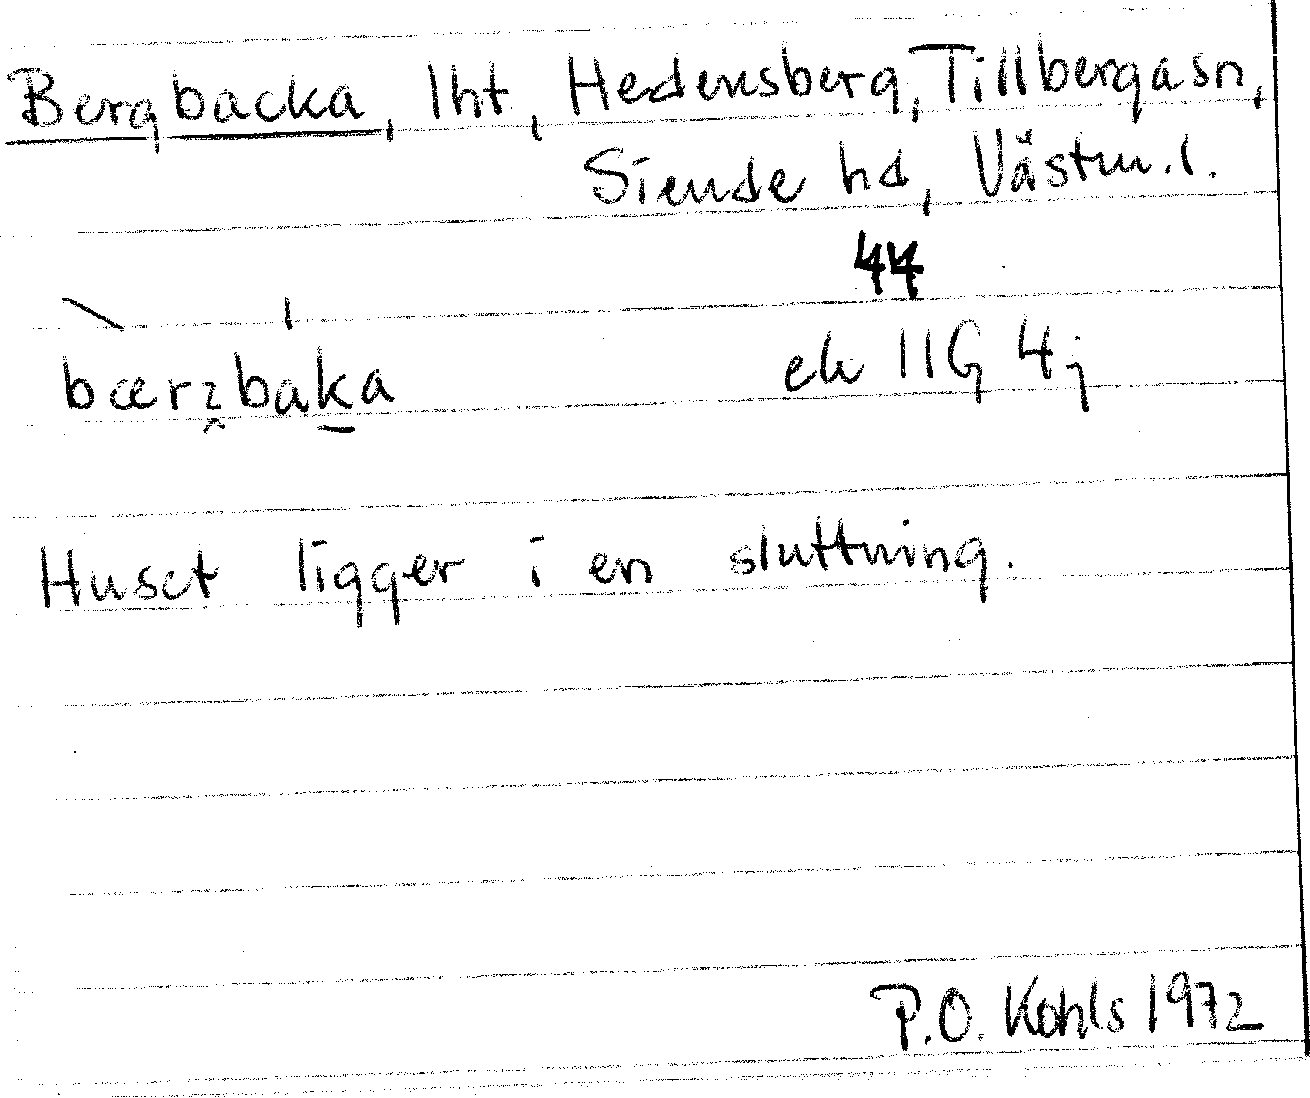 Bergbacka, lht, Hedensberg, Tillberga sn,
Siende hd, Västm. l.
44
bærꝛbaka
ek 11G 4j
Huset ligger i en sluttning.
P.O. Kohls 1972